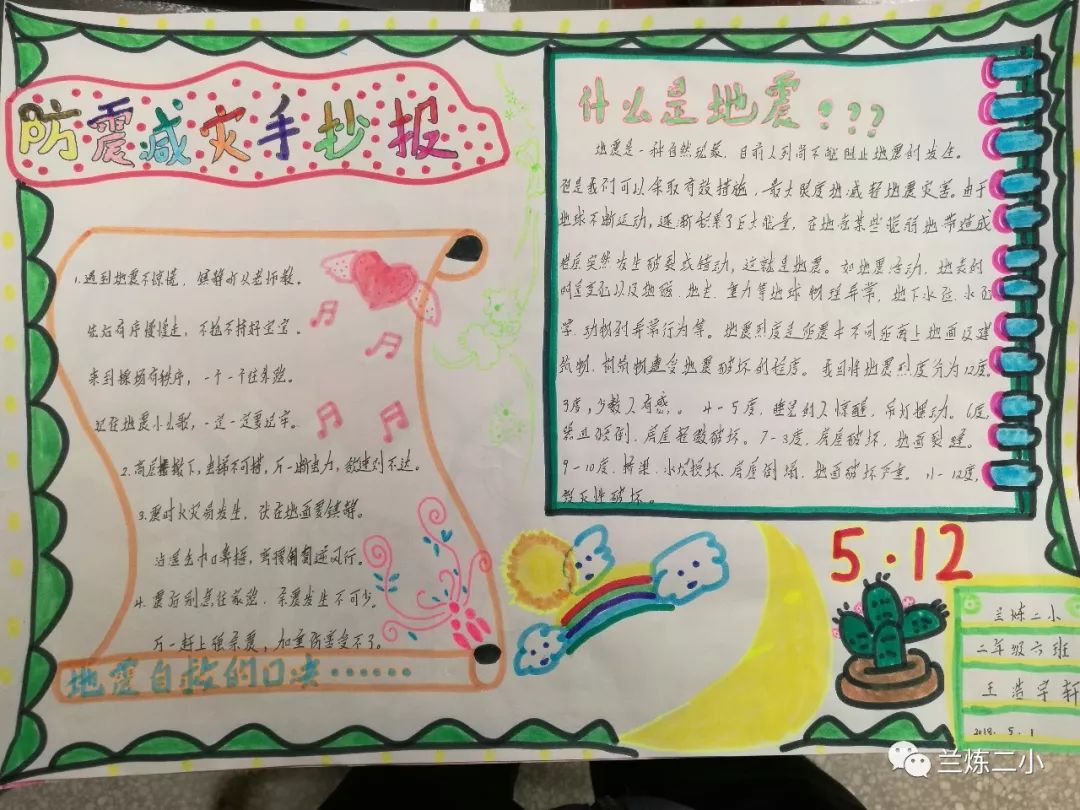 防震减灾手抄报
1.遇到地震不惊慌，镇静听从老师教。
先后有序慢慢走，不抢不挤好宝宝。
来到操场有秩序，一个一个往外强。
记在地震小儿歌，一定一定要记牢。
2.高层楼撤下，电梯不可搭，万一断电力，欲速则不达。
3.震时火灾易发生，伏在地面要镇静。
沾湿毛巾口鼻捂，弯腰匍匐逆风行。
4.震后别急往家跑，余震发生不可少。
万一赶上强余震，加重伤害受不了。
地震自救的口决……
什么是地震???
地震是一种自然现象，目前人到尚不能阻止地震的发生。
但是我们可以采取有效措施，最大限度地减轻地震灾害。由于
地球不断运动，逐渐积累了巨大能量，在地壳某些脆弱地带造成
岩层突然发生破裂或错动，这就是地震。如地震活动，地表的
明显变化以及地磁、地电、重力等地球物理异常，地下水位、水化
学、动物到异常行为等。地震烈度是在震中不同距离上地面及建
筑物、构筑物遭受地震破坏的程度。我国将地震烈度分为12度。
3度，少数人有感。4-5度，睡觉的人惊醒，吊灯摆动。6度，
器皿倾倒、房屋轻微破坏。7-8度，房屋破坏，地面裂缝。
9-10度，桥梁、水坝损坏、房屋倒塌，地面破坏严重。11-12度，
毁灭性破坏。
5·12
兰炼二小
二年级六班
王浩宇轩
2018.5.1
兰炼二小